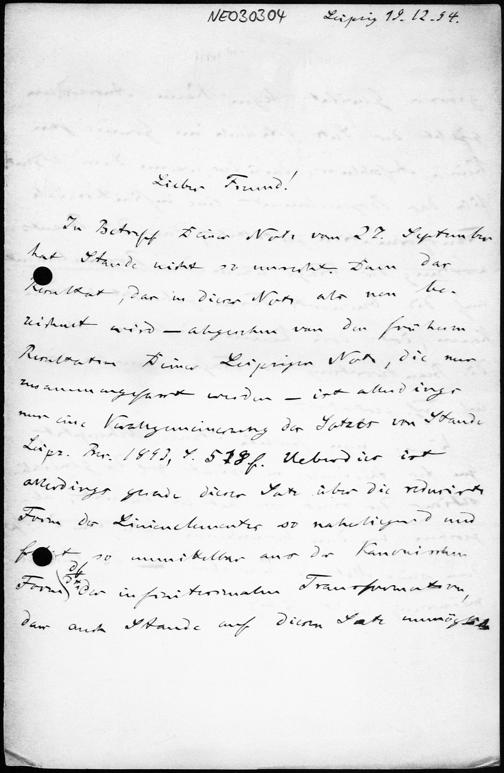 NE030304
Leipzig 19.12.94.
Lieber Freund!
In Betreff Deiner Note vom 27 September
hat Staude nicht so unrecht. Denn das
Resultat, das in dieser Note als neu be-
zeichnet wird — abgesehen von den frühern
Resultaten Deiner Leipziger Note, die nur
zusammengefasst werden — ist allerdings
nur eine Verallgemeinerung des Satzes von Staude
Leipz. Ber. 1893, S. 518f. Ueberdies ist
allerdings gerade dieser Satz über die reducirte
Form des Linienelementes so naheliegend und
folgt so unmittelbar aus der kanonischen
Form der infinitesimalen Transformation,
dass auch Staude auf diesen Satz